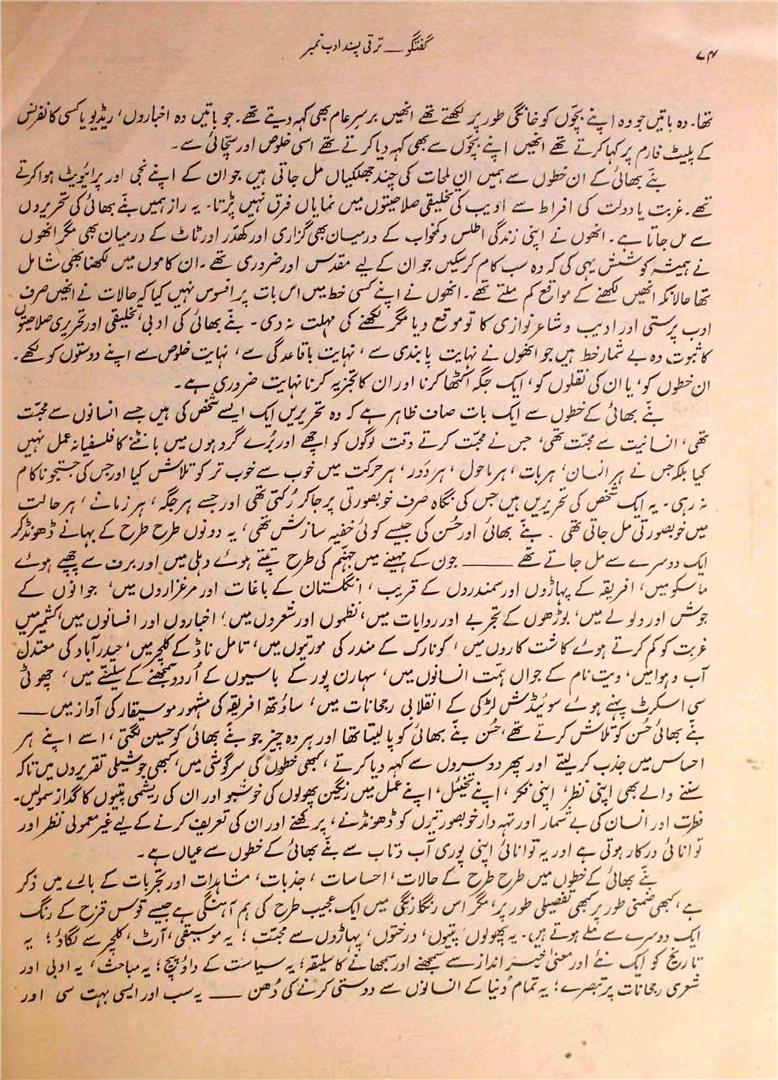 ۷۴
گفتگو — ترقی پسند ادب نمبر
تھا۔ وہ باتیں جو وہ اپنے بچّوں کو خانگی طور پر لکھتے تھے انھیں برسرِ عام بھی کہہ دیتے تھے۔ جو باتیں وہ اخباروں، ریڈیو یا کسی کانفرنس
کے پلیٹ فارم پر کہا کرتے تھے انھیں اپنے بچّوں سے بھی کہہ دیا کرتے تھے اسی خلوص اور سچّائی سے۔
بنّے بھائی کے ان خطوں سے ہمیں ان لمحات کی چند جھلکیاں مل جاتی ہیں جو ان کے اپنے نجی اور پرائیویٹ ہوا کرتے
تھے۔ غربت یا دولت کی افراط سے ادیب کی تخلیقی صلاحیتوں میں نمایاں فرق نہیں پڑتا۔ یہ راز ہمیں بنّے بھائی کی تحریروں
سے مل جاتا ہے۔ انھوں نے اپنی زندگی اطلس و کمخواب کے درمیان بھی گزاری اور کھدّر اور ٹاٹ کے درمیان بھی مگر انھوں
نے ہمیشہ کوشش یہی کی کہ وہ سب کام کر سکیں جو ان کے لیے مقدس اور ضروری تھے۔ ان کاموں میں لکھنا بھی شامل
تھا حالانکہ انھیں لکھنے کے مواقع کم ملتے تھے۔ انھوں نے اپنے کسی خط میں اس بات پر افسوس نہیں کیا کہ حالات نے انھیں صرف
ادب پرستی اور ادیب و شاعر نوازی کا تو موقع دیا مگر لکھنے کی مہلت نہ دی۔ بنّے بھائی کی ادبی، تخلیقی اور تحریری صلاحیتوں
کا ثبوت وہ بے شمار خط ہیں جو انھوں نے نہایت پابندی سے، نہایت باقاعدگی سے، نہایت خلوص سے اپنے دوستوں کو لکھے۔
ان خطوں کو، یا ان کی نقلوں کو، ایک جگہ اکٹھا کرنا اور ان کا تجزیہ کرنا نہایت ضروری ہے۔
بنّے بھائی کے خطوں سے ایک بات صاف ظاہر ہے کہ وہ تحریریں ایک ایسے شخص کی ہیں جسے انسانوں سے محبّت
تھی، انسانیت سے محبّت تھی، جس نے محبّت کرتے وقت لوگوں کو اچھے اور بُرے گروہوں میں بانٹنے کا فلسفیانہ عمل نہیں
کیا بلکہ جس نے ہر انسان، ہر بات، ہر ماحول، ہر دور، ہر حرکت میں خوب سے خوب تر کو تلاش کیا اور جس کی جستجو ناکام
نہ رہی۔ یہ ایک شخص کی تحریریں ہیں جس کی نگاہ صرف خوبصورتی پر جا کر رُکتی تھی اور جسے ہر جگہ، ہر زمانے، ہر حالت
میں خوبصورتی مل جاتی تھی۔ بنّے بھائی اور حُسن کی جیسے کوئی خفیہ سازش تھی، یہ دونوں طرح طرح کے بہانے ڈھونڈ کر
ایک دوسرے سے مل جاتے تھے —— جون کے مہینے میں جہنّم کی طرح تپتے ہوئے دہلی میں اور برف سے چھپے ہوئے
ماسکو میں، افریقہ کے پہاڑوں اور سمندروں کے قریب، انگلستان کے باغات اور مرغزاروں میں، جوانوں کے
جوش اور ولولے میں، بوڑھوں کے تجربے اور روایات میں، نظموں اور شعروں میں، اخباروں اور افسانوں میں، کشمیر میں
غربت کو کم کرتے ہوئے کاشت کاروں میں، کونارک کے مندر کی مورتیوں میں، تامل ناڈ کے کلچر میں، حیدرآباد کی معتدل
آب و ہوا میں، ویت نام کے جواں ہمّت انسانوں میں، سہارن پور کے باسیوں کے اُردو سمجھنے کے سلیقے میں، چھوٹی
سی اسکرٹ پہنے ہوئے سوئیڈش لڑکی کے انقلابی رجحانات میں، ساؤتھ افریقہ کی مشہور موسیقار کی آواز میں ——
بنّے بھائی حُسن کو تلاش کرتے تھے، حُسن بنّے بھائی کو پا لیتا تھا اور ہر وہ چیز جو بنّے بھائی کو حسین لگتی، اسے اپنے ہر
احساس میں جذب کر لیتے اور پھر دوسروں سے کہہ دیا کرتے، کبھی خطوں کی سرگوشی میں، کبھی جوشیلی تقریروں میں تاکہ
سننے والے بھی اپنی نظر، اپنی فکر، اپنے تخیئل، اپنے عمل میں رنگین پھولوں کی خوشبو اور ان کی ریشمی پتیوں کا گداز سمو لیں۔
فطرت اور انسان کی بے شمار اور تہہ دار خوبصورتیوں کو ڈھونڈنے، پرکھنے اور ان کی تعریف کرنے کے لیے غیر معمولی نظر اور
توانائی درکار ہوتی ہے اور یہ توانائی اپنی پوری آب و تاب سے بنّے بھائی کے خطوں سے عیاں ہے۔
بنّے بھائی کے خطوں میں طرح طرح کے حالات، احساسات، جذبات، مشاہدات اور تجربات کے بارے میں ذکر
ہے، کبھی ضمنی طور پر کبھی تفصیلی طور پر، مگر اس رنگا رنگی میں ایک عجیب طرح کی ہم آہنگی ہے جیسے قوس قزح کے رنگ
ایک دوسرے سے ملے ہوتے ہیں۔ یہ پھولوں، پتیوں، درختوں، پہاڑوں سے محبّت؛ یہ موسیقی، آرٹ، کلچر سے لگاؤ؛ یہ
تاریخ کو ایک نئے اور معنی خیز انداز سے سمجھنے اور سمجھانے کا سلیقہ؛ یہ سیاست کے داؤ پیچ؛ یہ مباحث، یہ ادبی اور
شعری رجحانات پر تبصرے؛ یہ تمام دُنیا کے انسانوں سے دوستی کرنے کی دُھن —— یہ سب اور ایسی بہت سی اور